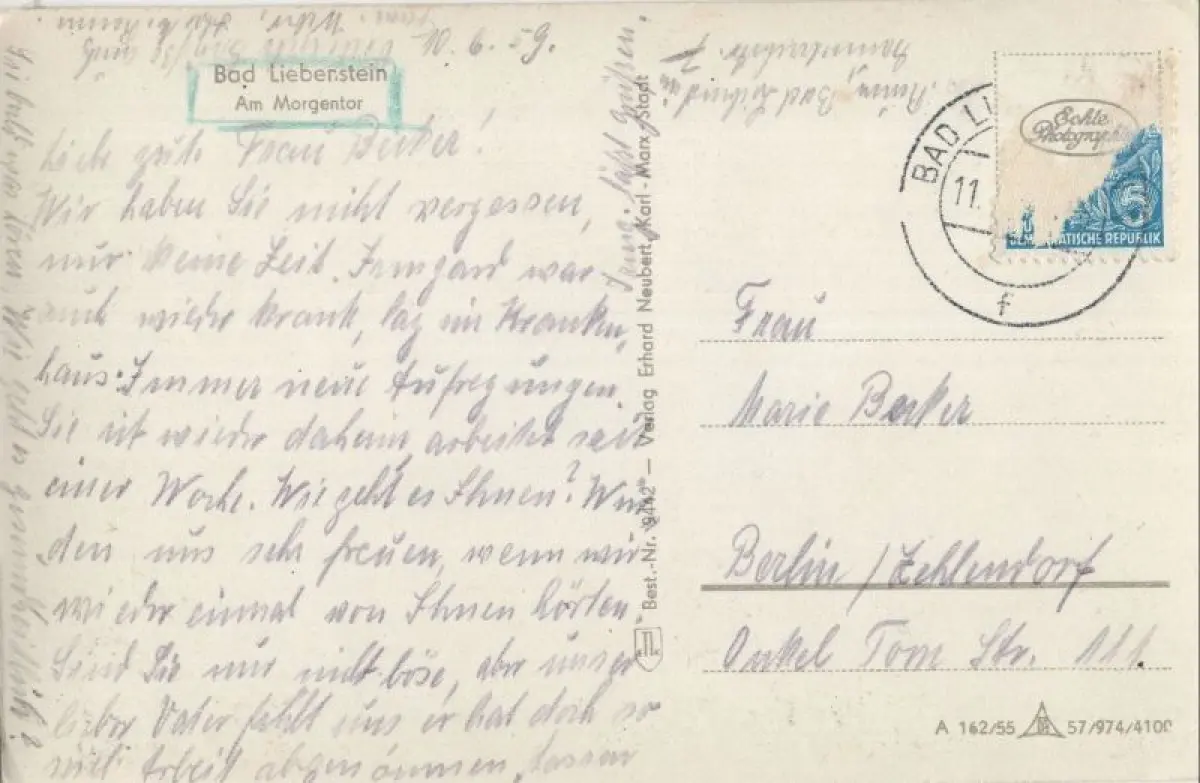 10. 6. 59.
Bad Liebenstein
Am Morgentor
Liebe gute Frau Becker!
Wir haben Sie nicht vergessen,
nur keine Zeit. Irmgard war
auch wieder krank, lag im Kranken-
haus. Immer neue Aufregungen.
Sie ist wieder daheim, arbeitet seit
einer Woche. Wie geht es Ihnen? Wür-
den uns sehr freuen, wenn wir
wieder einmal von Ihnen hörten.
Sind Sie nur nicht böse, aber unser
lieber Vater fehlt uns er hat doch so
viel Arbeit abgenommen, lassen
Best.-Nr. 9442 – Verlag Erhard Neubert, Karl-Marx-Stadt
Echte
Photographie
BAD LI
11.
DEMOKRATISCHE REPUBLIK
5
f
Frau
Marie Becker
Berlin / Zehlendorf
Onkel Tom Str. 111.
A 162/55 57/974/4100